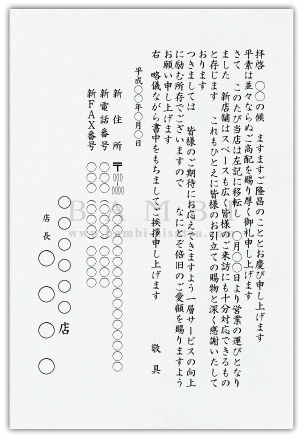 拝啓　〇〇の候　ますますご隆昌のこととお慶び申し上げます
平素は並々ならぬご高配を賜り厚く御礼申し上げます
さて　このたび当店は左記に移転し　〇月〇〇日より営業の運びとなり
ました　新店舗はスペースも広く皆様のご来訪にも十分対応できるもの
と存じます　これもひとえに皆様のお引立ての賜物と深く感謝いたして
おります
つきましては　皆様のご期待にお応えできますよう一層サービスの向上
に励む所存でございますので　なにとぞ倍旧のご愛顧を賜りますよう
お願い申し上げます
右　略儀ながら書中をもちましてご挨拶申し上げます
敬具
平成〇〇年〇月〇日
新住所　〒〇〇〇-〇〇〇〇
〇〇〇〇〇〇〇〇〇〇〇〇〇〇
新電話番号　〇〇〇〇〇〇〇〇〇〇
新FAX番号　〇〇〇〇〇〇〇〇〇〇
〇〇〇〇〇〇店
店長　〇〇〇〇
BAMBU